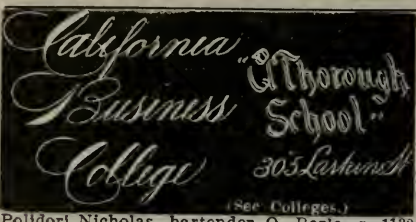 California
Business
College
"A Thorough
School"
305 Larkin St
(See Colleges.)
Polidori Nicholas, bartender O.